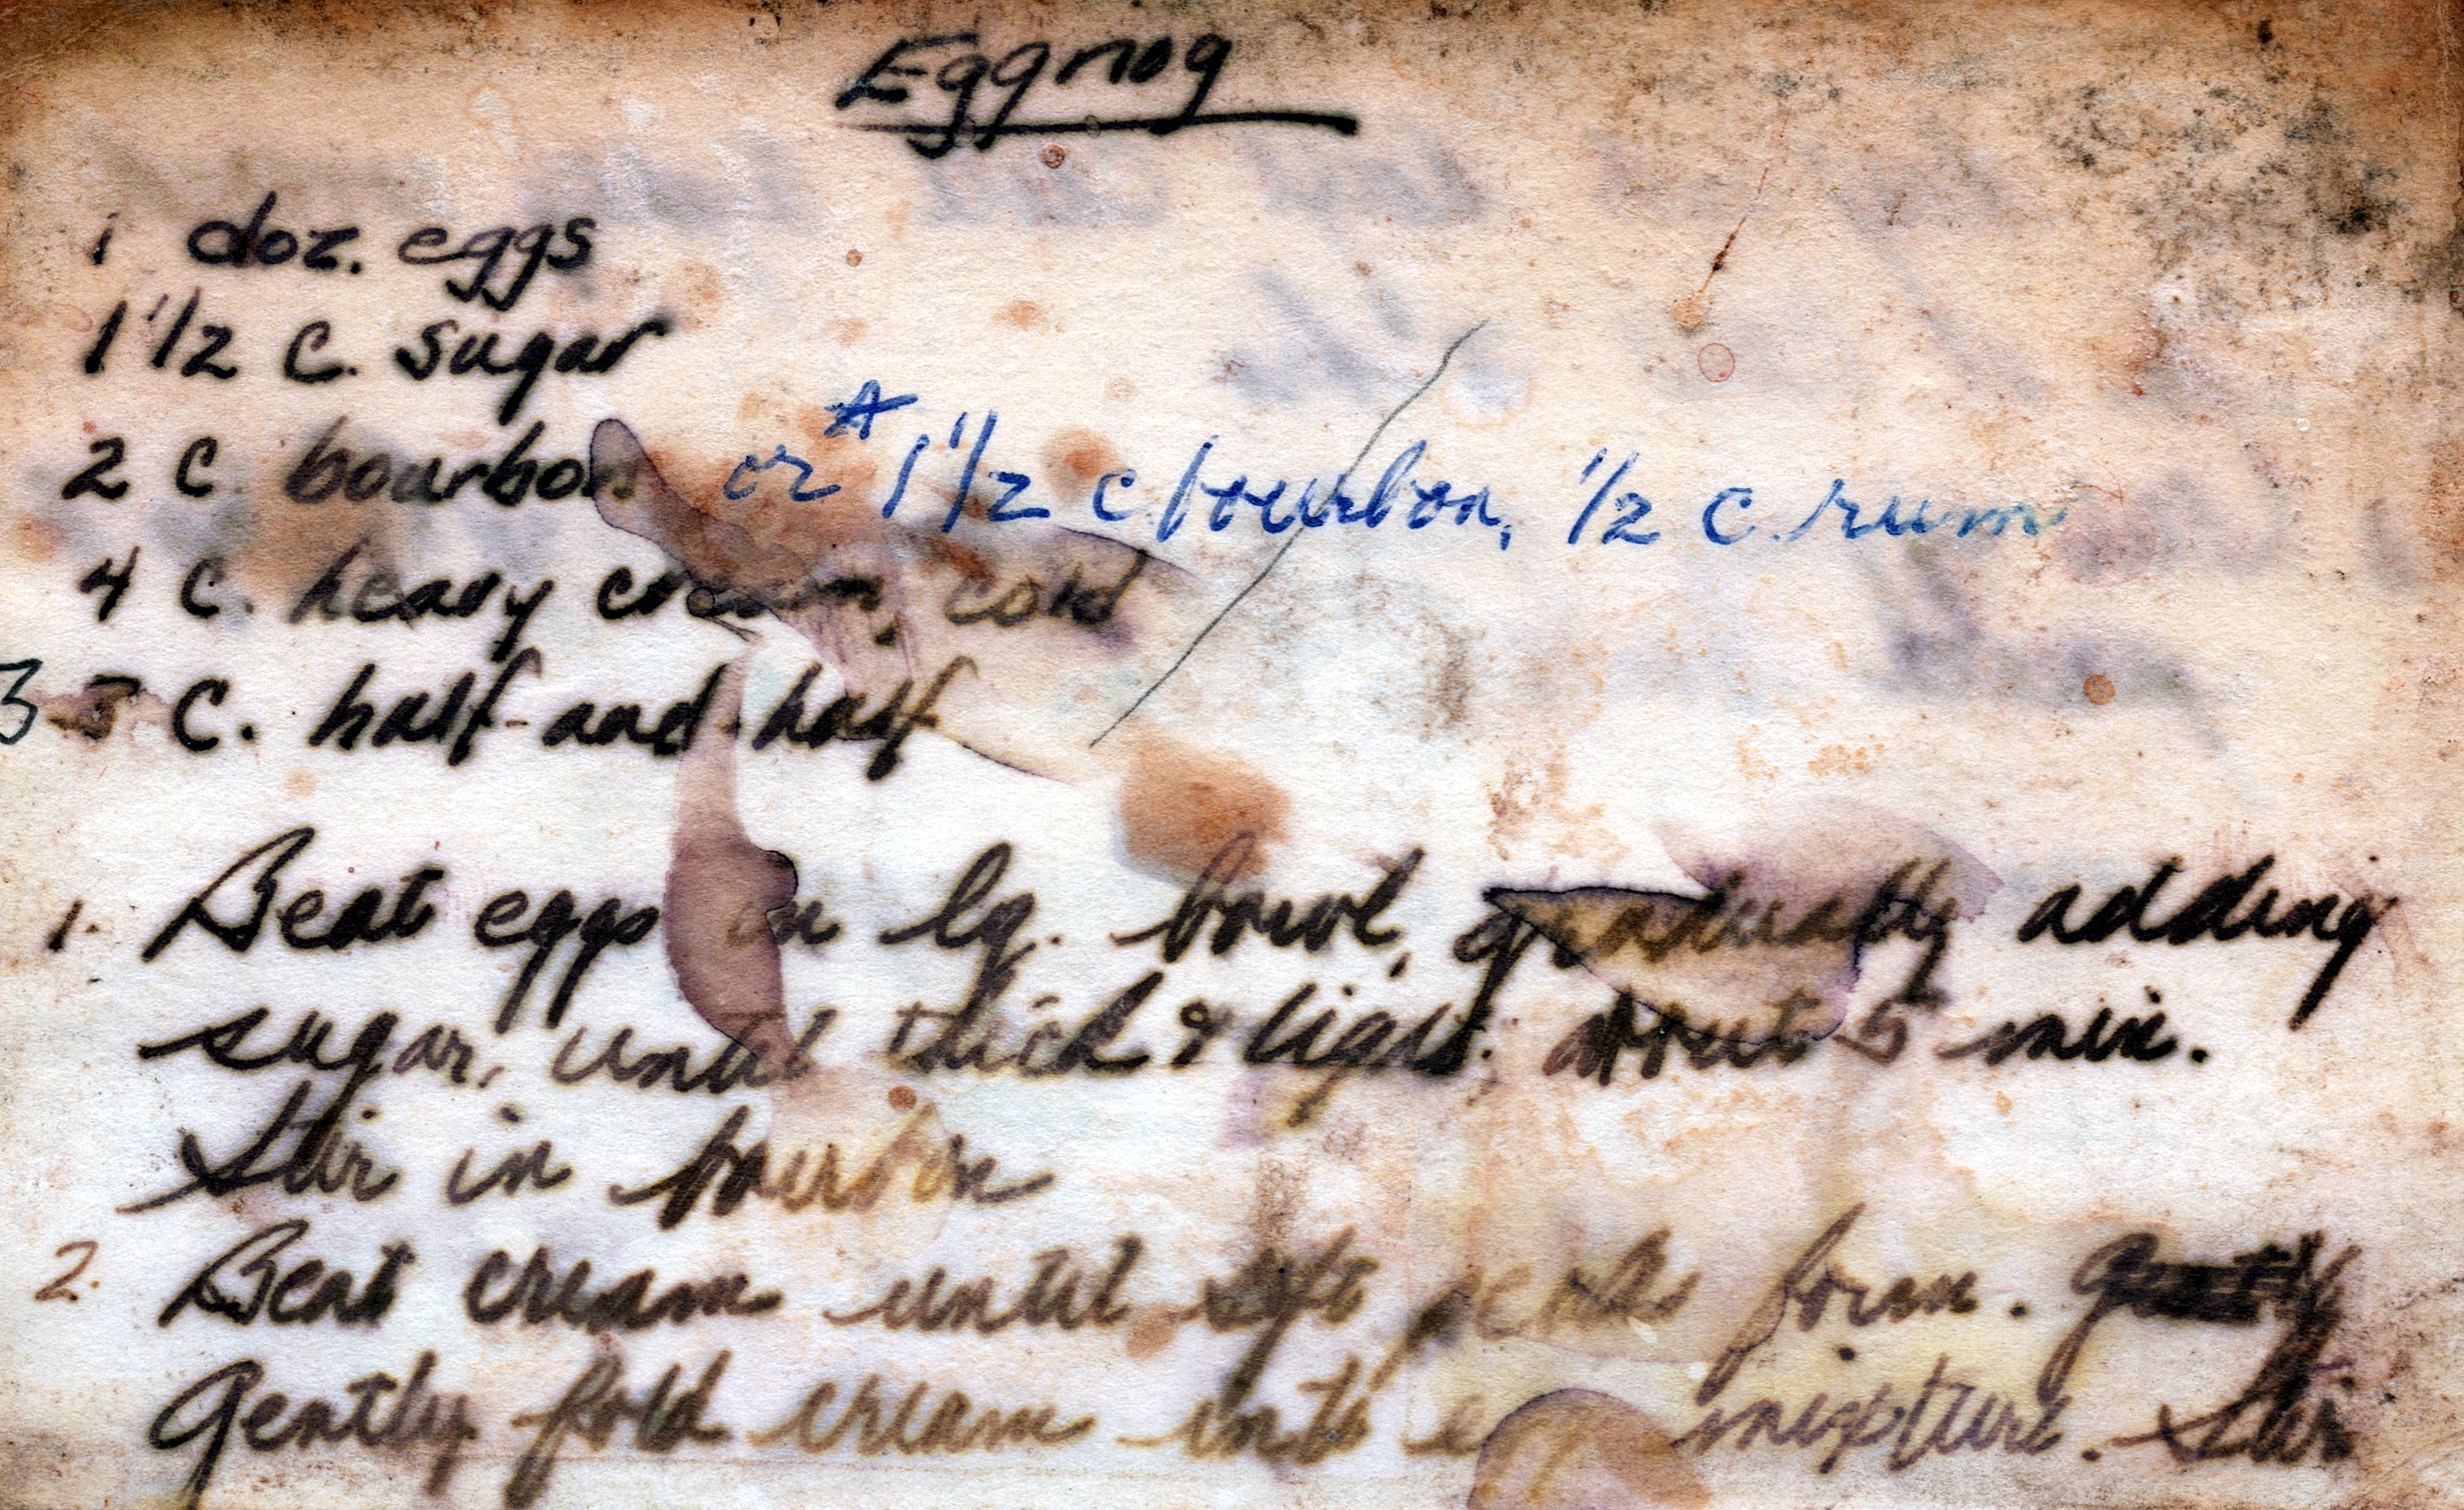 Eggnog
1 doz. eggs
1 1/2 c. sugar
2 c. bourbon or * 1 1/2 c bourbon, 1/2 c. rum
4 c. heavy cream, cold
3 c. half-and-half
1. Beat eggs in lg. bowl, gradually adding
sugar, until thick & light, about 5 min.
Stir in bourbon
2. Beat cream until soft peaks form.
Gently fold cream into mixture. Stir